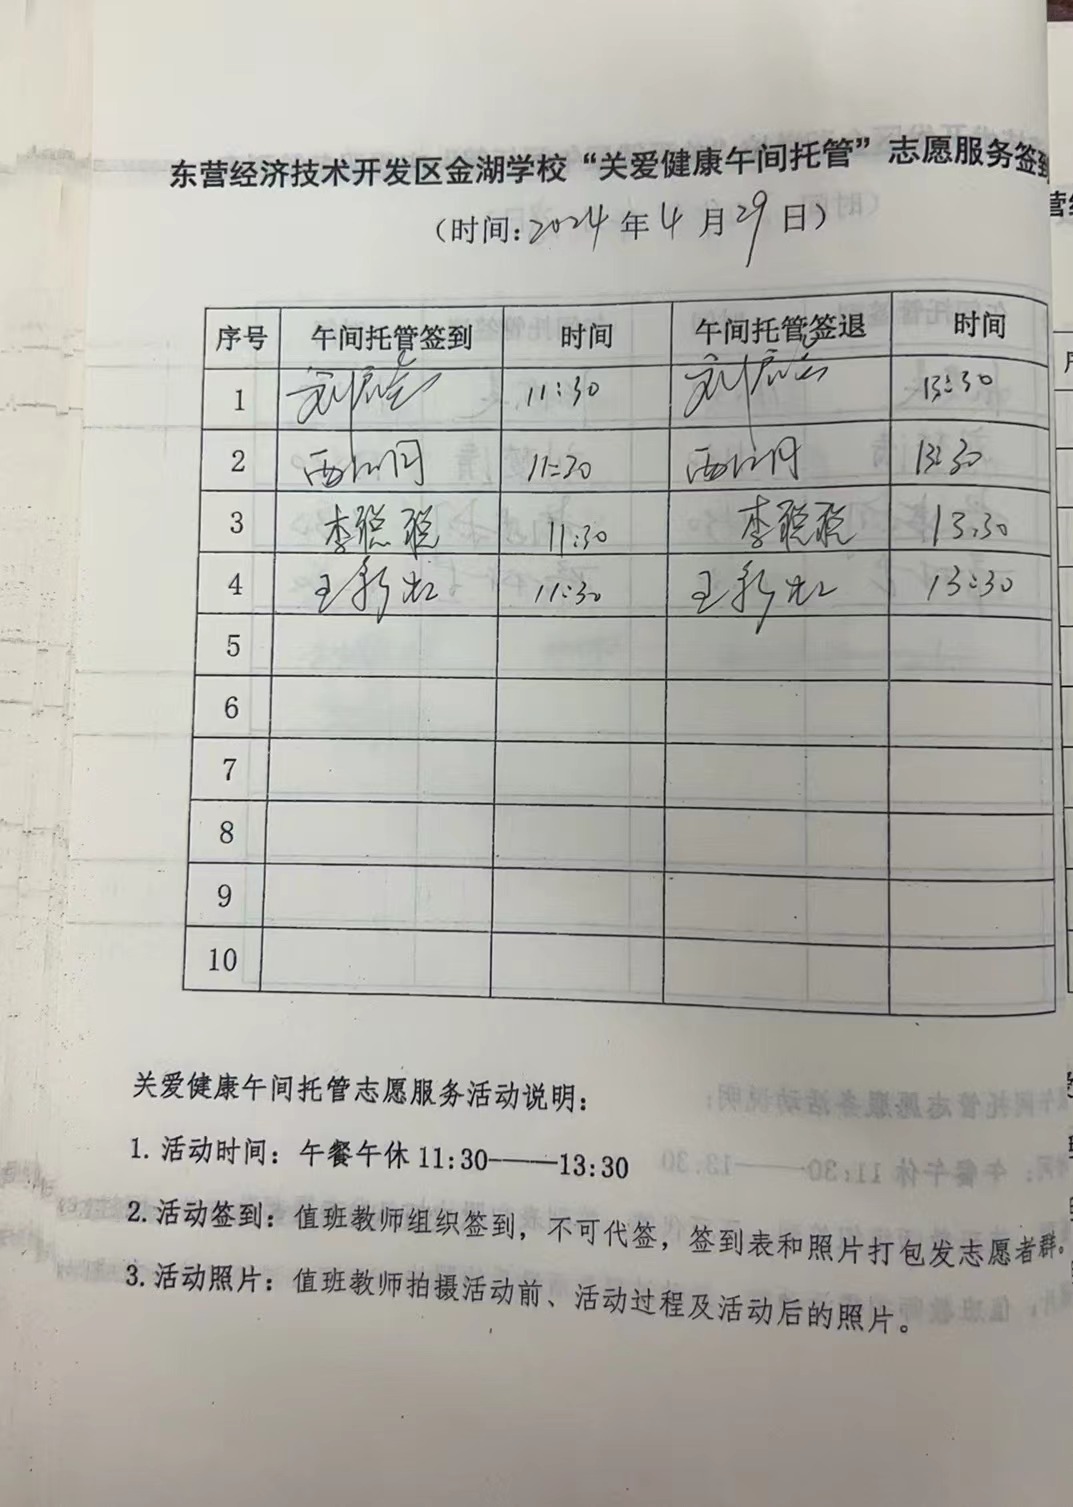 东营经济技术开发区金湖学校“关爱健康午间托管”志愿服务签到
（时间：2024年4月29日）
序号 午间托管签到 时间 午间托管签退 时间
1 11:30 13:30
2 11:30 13:30
3 李聪聪 11:30 李聪聪 13:30
4 王彩虹 11:30 王彩虹 13:30
5
6
7
8
9
10
关爱健康午间托管志愿服务活动说明：
1. 活动时间：午餐午休 11:30——13:30
2. 活动签到：值班教师组织签到，不可代签，签到表和照片打包发志愿者群。
3. 活动照片：值班教师拍摄活动前、活动过程及活动后的照片。